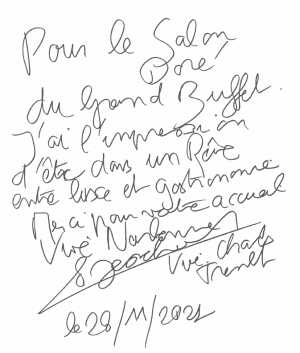 Pour le Salon
Doré
du Grand Buffet.
J'ai l'impression
d'être dans un Rêve
entre luxe et gastronomie
Merci pour votre accueil
Vive Narbonne
Vive Charles
Trenet
le 28/11/2021